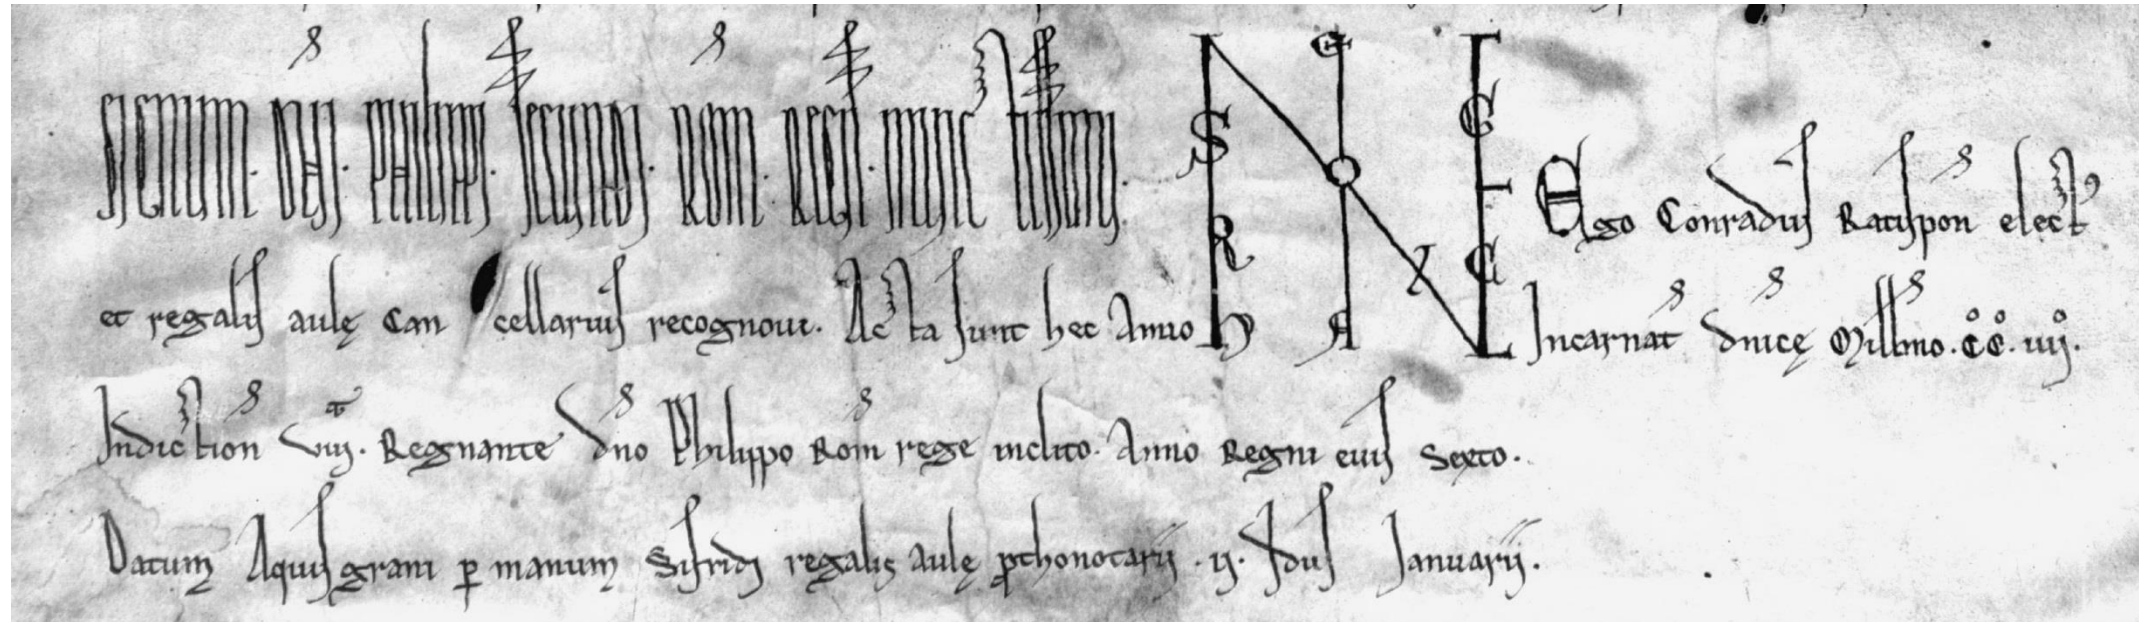 Signum dn̄i philippi secundi Rom̄ Regis inuictissimi.
Ego Conradus Ratispon̄ elect9
et regalis aulę Can cellarius recognoui. Acta sunt hec Anno Incarnat̄ dn̄icę Mill̄mo. CC. iiij.
Indiction̄ viij. Regnante dn̄o Philippo Rom̄ rege inclito. Anno Regni eius Sexto.
Datum Aquisgrani p manum Sifridi regalis aulę pthonotarij. ij. Idus Januarij.